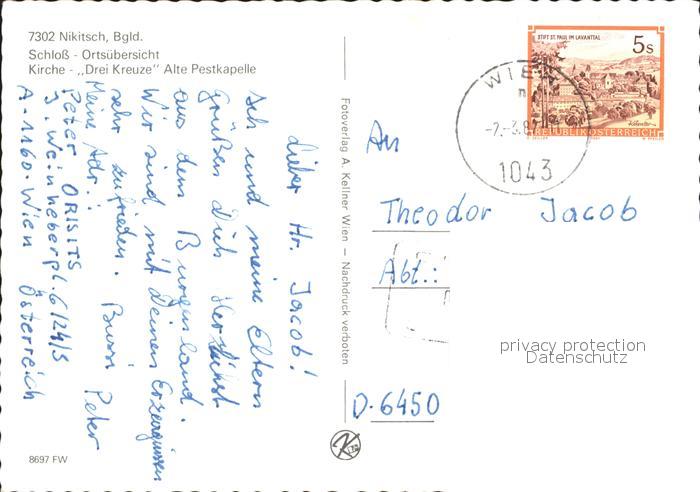 7302 Nikitsch, Bgld.
Schloß - Ortsübersicht
Kirche - „Drei Kreuze" Alte Pestkapelle
Lieber Hr. Jacob!
Ich und meine Eltern
Grüßen Dich Herzlichst
aus dem Burgenland.
Wir sind mit Deinen Erzeugnissen
sehr zufrieden. Bussi Peter
Meine Adr.:
Peter ORISITS
J. Weinheberpl. 6/24/3
A-1160-Wien Österreich
8697 FW
Fotoverlag A. Kellner Wien — Nachdruck verboten
STIFT ST. PAUL IM LAVANTTAL
5s
REPUBLIK ÖSTERREICH
WIEN
1043
An
Theodor Jacob
Abt.:
D-6450
privacy protection
Datenschutz